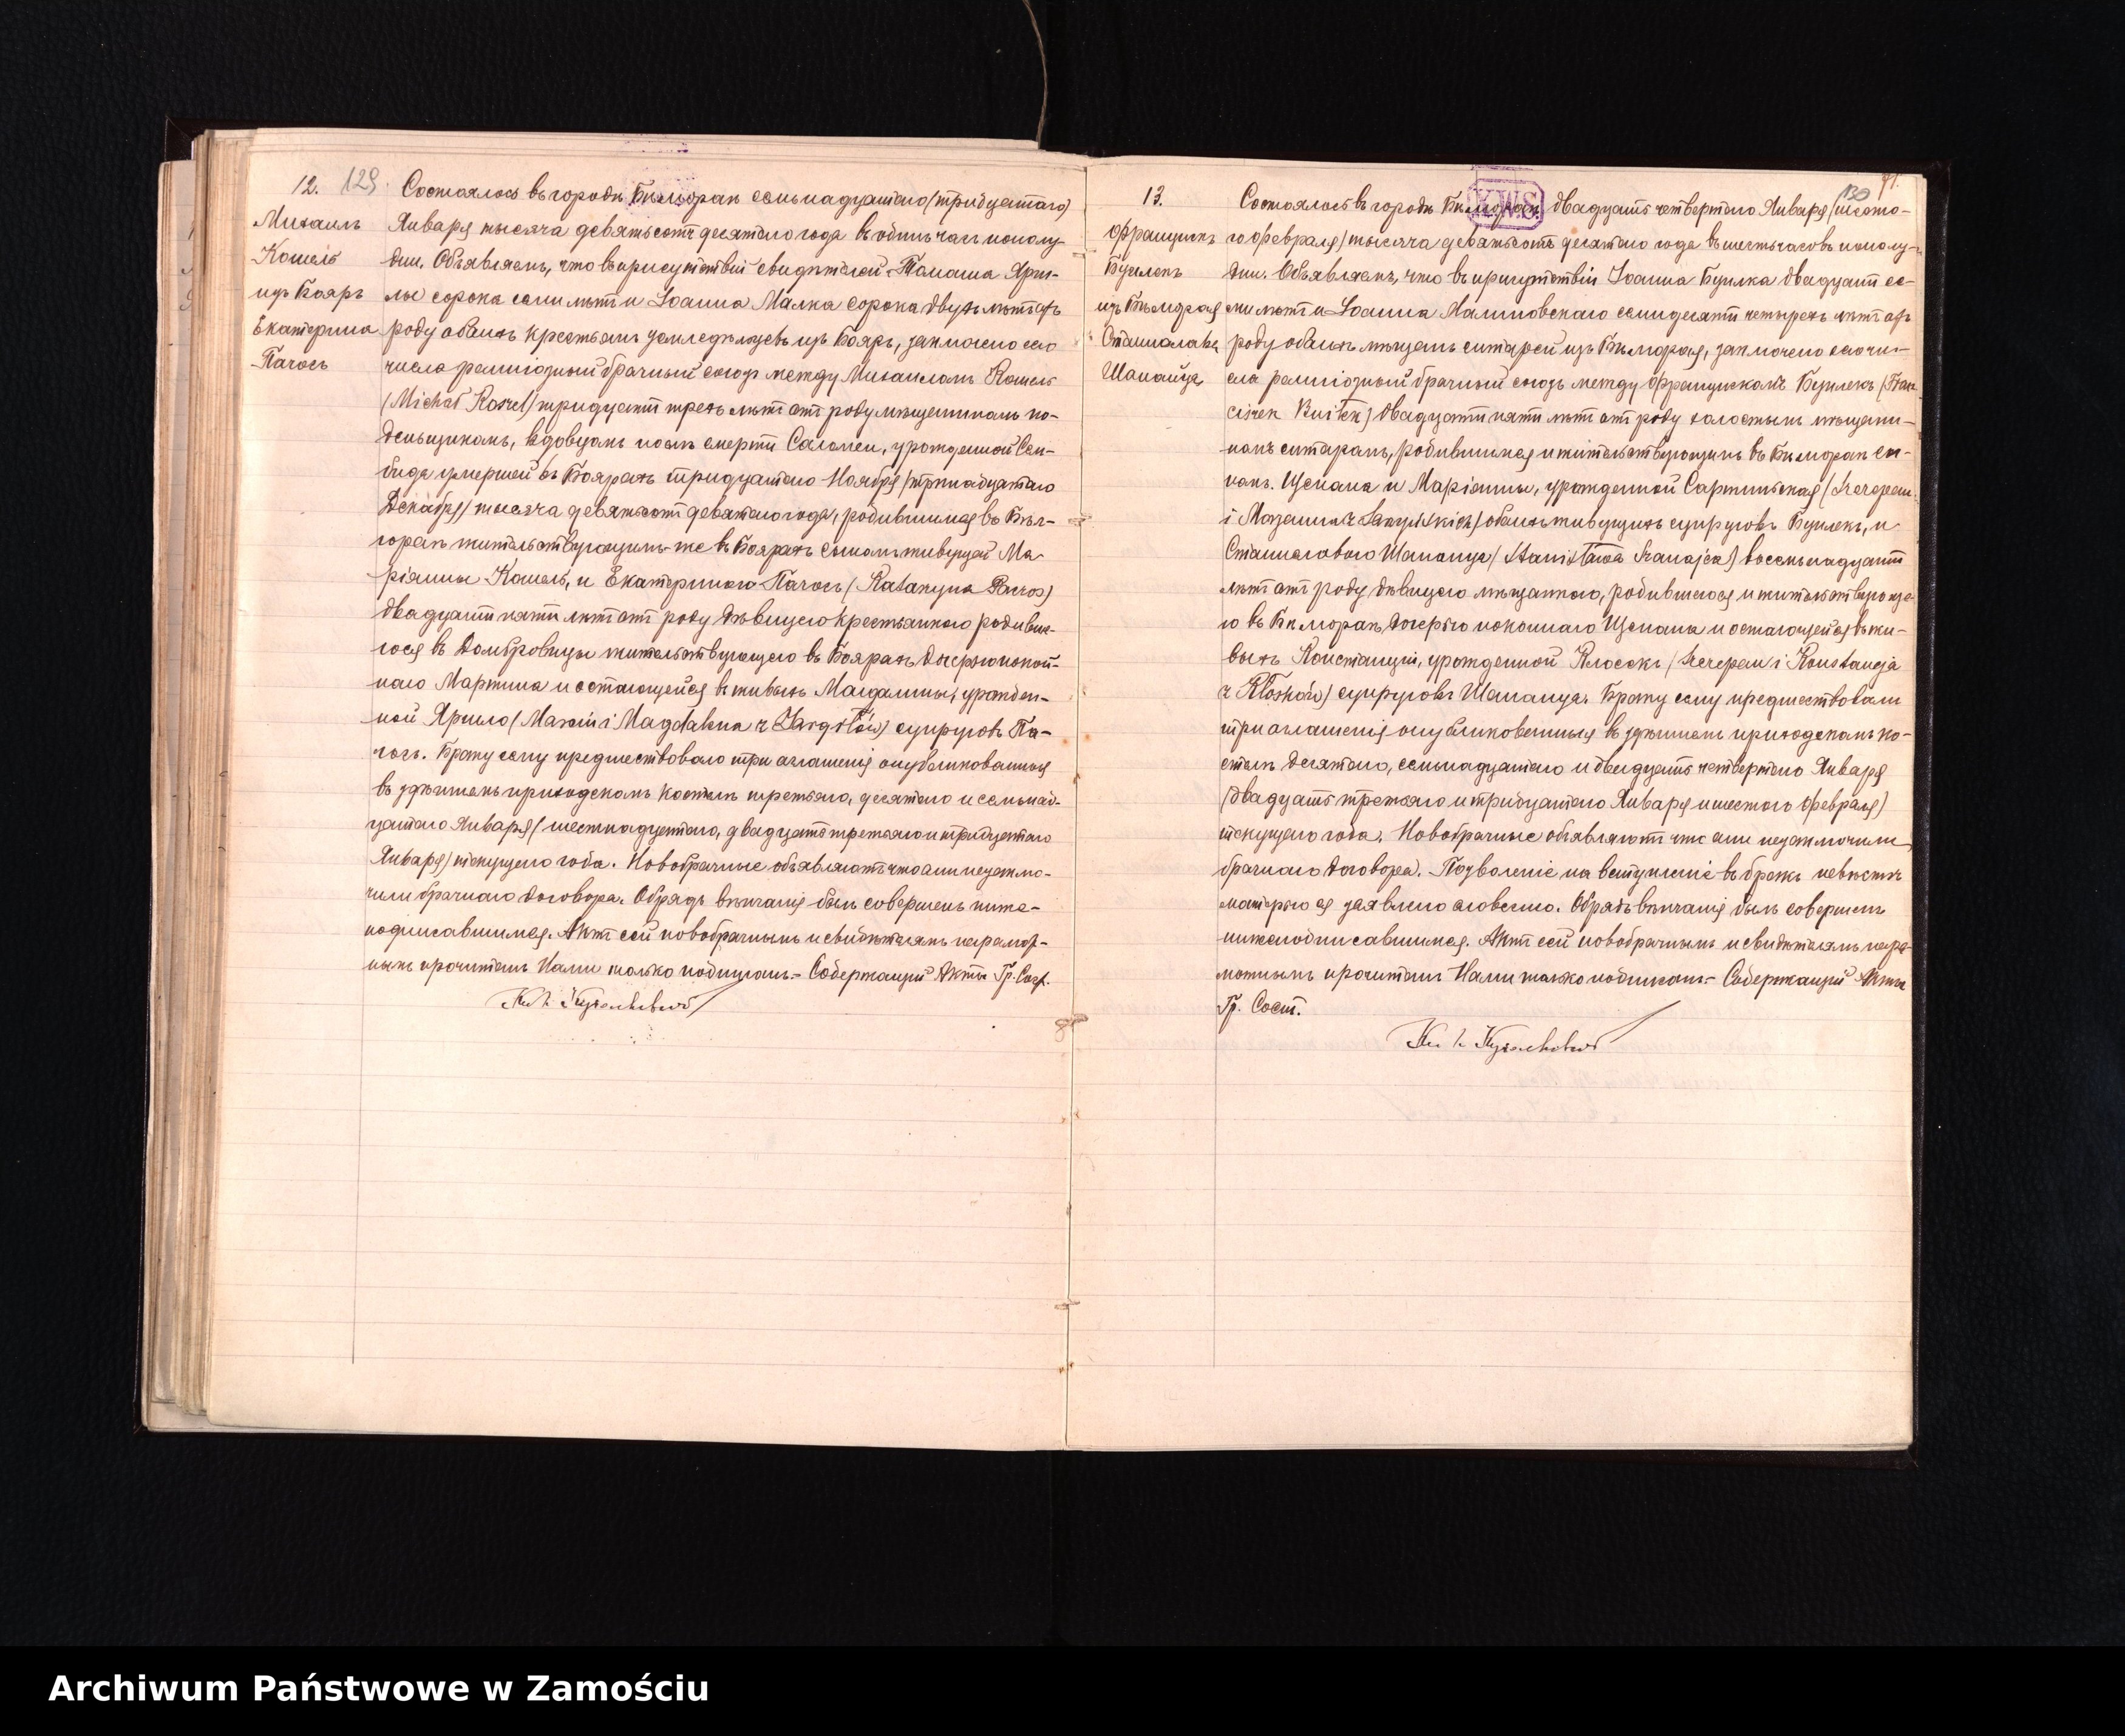 12. 129.
Михаилъ
Кошель
изъ Бояръ
Екатерина
Пачосъ
Состоялось въ городѣ Бѣлгораѣ семьнадцатаго (тридцатаго)
Января тысяча девятьсотъ десятаго года въ одинъ часъ пополу-
дни. Объявляемъ, что въ присутствіи свидѣтелей Томаша
сорока семи лѣтъ и Іоанна Малка сорока двухъ лѣтъ отъ
роду обоихъ крестьянъ земледѣльцевъ изъ Бояръ, заключено сего
числа религіозный брачный союзъ между Михаиломъ Кошель
(Michał Koszel) тридцати трехъ лѣтъ отъ роду мѣщаниномъ по-
деньщикомъ, вдовцомъ послѣ смерти Саломеи, урожденной
умершей въ Боярахъ тридцатаго Ноября (тринадцатаго
Декабря) тысяча девятьсотъ девятаго года, родившимся въ Бѣл-
гораѣ жительствующимъ-же въ Боярахъ сыномъ живущей Ма-
ріянны Кошель, и Екатериною Пачосъ (Katarzyna Paczos)
двадцати пяти лѣтъ отъ роду дѣвицею крестьянкою родивше-
юся въ Домбровицы жительствующею въ Боярахъ дочерью покой-
наго Мартина и остающейся въ живыхъ Магдалины, урожден-
ной (Marcin i Magdalena z) супруговъ Па-
чосъ. Браку сему предшествовало три оглашенія опубликованныя
въ здѣшнемъ приходскомъ костелѣ третьяго, десятаго и семьнад-
цатаго Января (шестнадцатаго, двадцать третьяго и тридцатаго
Января) текущаго года. Новобрачные объявляютъ что они незаклю-
чили брачнаго договора. Обрядъ вѣнчанія былъ совершенъ ниже-
подписавшимся. Актъ сей новобрачнымъ и свидѣтелямъ неграмот-
нымъ прочитанъ Нами только подписанъ.= Содержащій Акты Гр. Сост.
13.
130
71.
K.W.S.
Францискъ
Буилекъ
изъ Бѣлгорая
Станислава
Шанайца
Состоялось въ городѣ Бѣлгораѣ двадцать четвертаго Января (шесто-
го февраля) тысяча девятьсотъ десятаго года въ шесть часовъ пополу-
дни. Объявляемъ, что въ присутствіи Іоанна Буилка двадцати се-
ми лѣтъ и Іоанна Малиновскаго семидесяти четырехъ лѣтъ отъ
роду обоихъ мѣщанъ ситарей изъ Бѣлгорая, заключено сего чи-
сла религіозный брачный союзъ между Францискомъ Буилекъ (Fran-
ciszek Builek) двадцати пяти лѣтъ отъ роду холостымъ мѣщани-
номъ ситаремъ, родившимся и жительствующимъ въ Бѣлгораѣ сы-
номъ Щепана и Маріянны, урожденной (Szczepan
i Maryanna z) обоихъ живущихъ супруговъ Буилекъ, и
Станиславою Шанайца (Stanisława Szanajca) восемьнадцати
лѣтъ отъ роду дѣвицею мѣщанкою, родившеюся и жительствующе-
ю въ Бѣлгораѣ, дочерью покойнаго Щепана и остающейся въ жи-
выхъ Констанціи, урожденной Клосокъ (Szczepan i Konstancja
z Kłosków) супруговъ Шанайца. Браку сему предшествовали
три оглашенія опубликованныя въ здѣшнемъ приходскомъ ко-
стелѣ десятаго, семьнадцатаго и двадцать четвертаго Января
(двадцать третьяго и тридцатаго Января и шестого февраля)
текущаго года. Новобрачные объявляютъ что они незаключили
брачнаго договора. Позволеніе на вступленіе въ бракъ невѣстѣ
матерью ея заявлено словесно. Обрядъ вѣнчанія былъ совершенъ
нижеподписавшимся. Актъ сей новобрачнымъ и свидѣтелямъ негра-
мотнымъ прочитанъ Нами только подписанъ.= Содержащій Акты
Гр. Сост.
Archiwum Państwowe w Zamościu